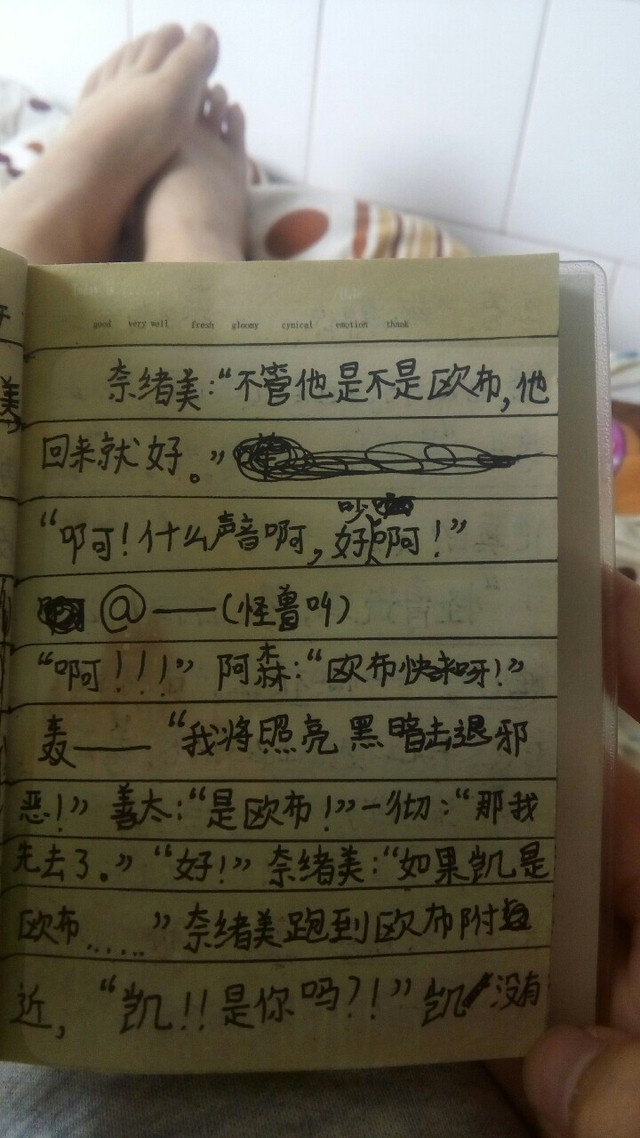 good very well fresh gloomy cynical emotion thank
奈绪美:“不管他是不是欧布,他
回来就好。”
“啊可!什么声音啊,好吵啊!”
@——(怪兽叫)
“啊!!!” 阿森:“欧布快来呀!”
轰——“我将照亮黑暗击退邪
恶!” 善太:“是欧布!”一彻:“那我
先去了。” “好!” 奈绪美:“如果凯是
欧布......” 奈绪美跑到欧布附
近,“凯!!是你吗?!” 凯没有
美